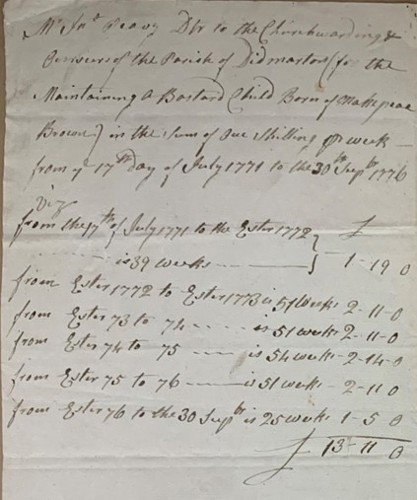 Mr Jno Peavy Dbr to the Churchwarding &
Oerseers of the Parish of Didmarton (for the
Maintaining A Bastard Child Born of Makepeac
Brown) in the Sum of One Shilling pr week
from ye 17th Day of July 1771 to the 30th Sepbr 1776
Viz £
from the 17th of July 1771 to the Ester 1772 }
is 39 weeks - 1-19 0
from Ester 1772 to Ester 1773 is 51 weeks 2-11-0
from Ester 73 to 74 ---- is 51 weeks 2-11-0
from Ester 74 to 75 ---- is 54 weeks - 2-14-0
from Ester 75 to 76 ---- is 51 weeks - 2-11 0
from Ester 76 to the 30 Sepbr is 25 weeks 1-5 0
£ 13-11 0